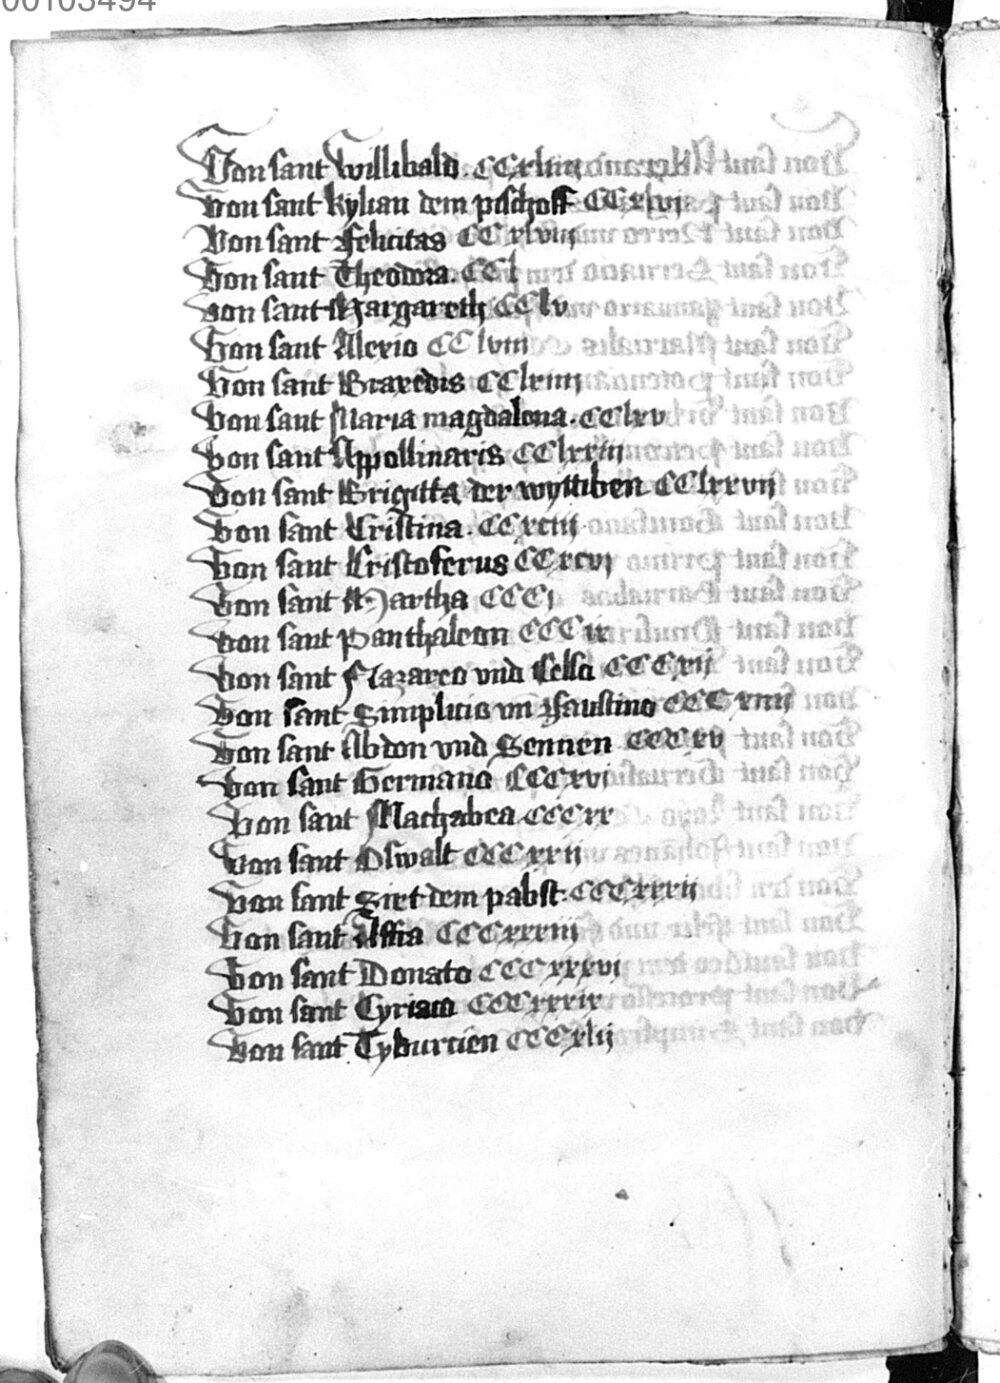 00103494
Von sant Willibald. CCxliiij
Von sant kylian dem pischoff CCxlvj
Von sant Felicitas CCxlviij
Von sant Theodora. CCl
Von sant Margareth CClv
Von sant Alexio CClviii
Von sant Braxedis CClxiiij
Von sant Maria magdalena. CClxv
Von sant Appollinaris CClxxiij
Von sant Brigitta der wyttiben CClxxvij
Von sant Cristina. CCxciij
Von sant Cristoferus CCxcvj
Von sant Martha CCCj
Von sant Panthaleon CCCix
Von sant Nazareo vnd Celso CCCxij
Von sant Simplicio vn Faustino CCCxiiij
Von sant Abdon vnd Sennen CCCxv
Von sant Germano CCCxvj
Von sant Machabea CCCxx
Von sant Oswalt CCCxxij
Von sant Sixt dem pabst. CCCxxxij
Von sant Affra CCCxxxiij
Von sant Donato CCCxxxvj
Von sant Cyriaco CCCxxxix
Von sant Tyburcien CCCxlij